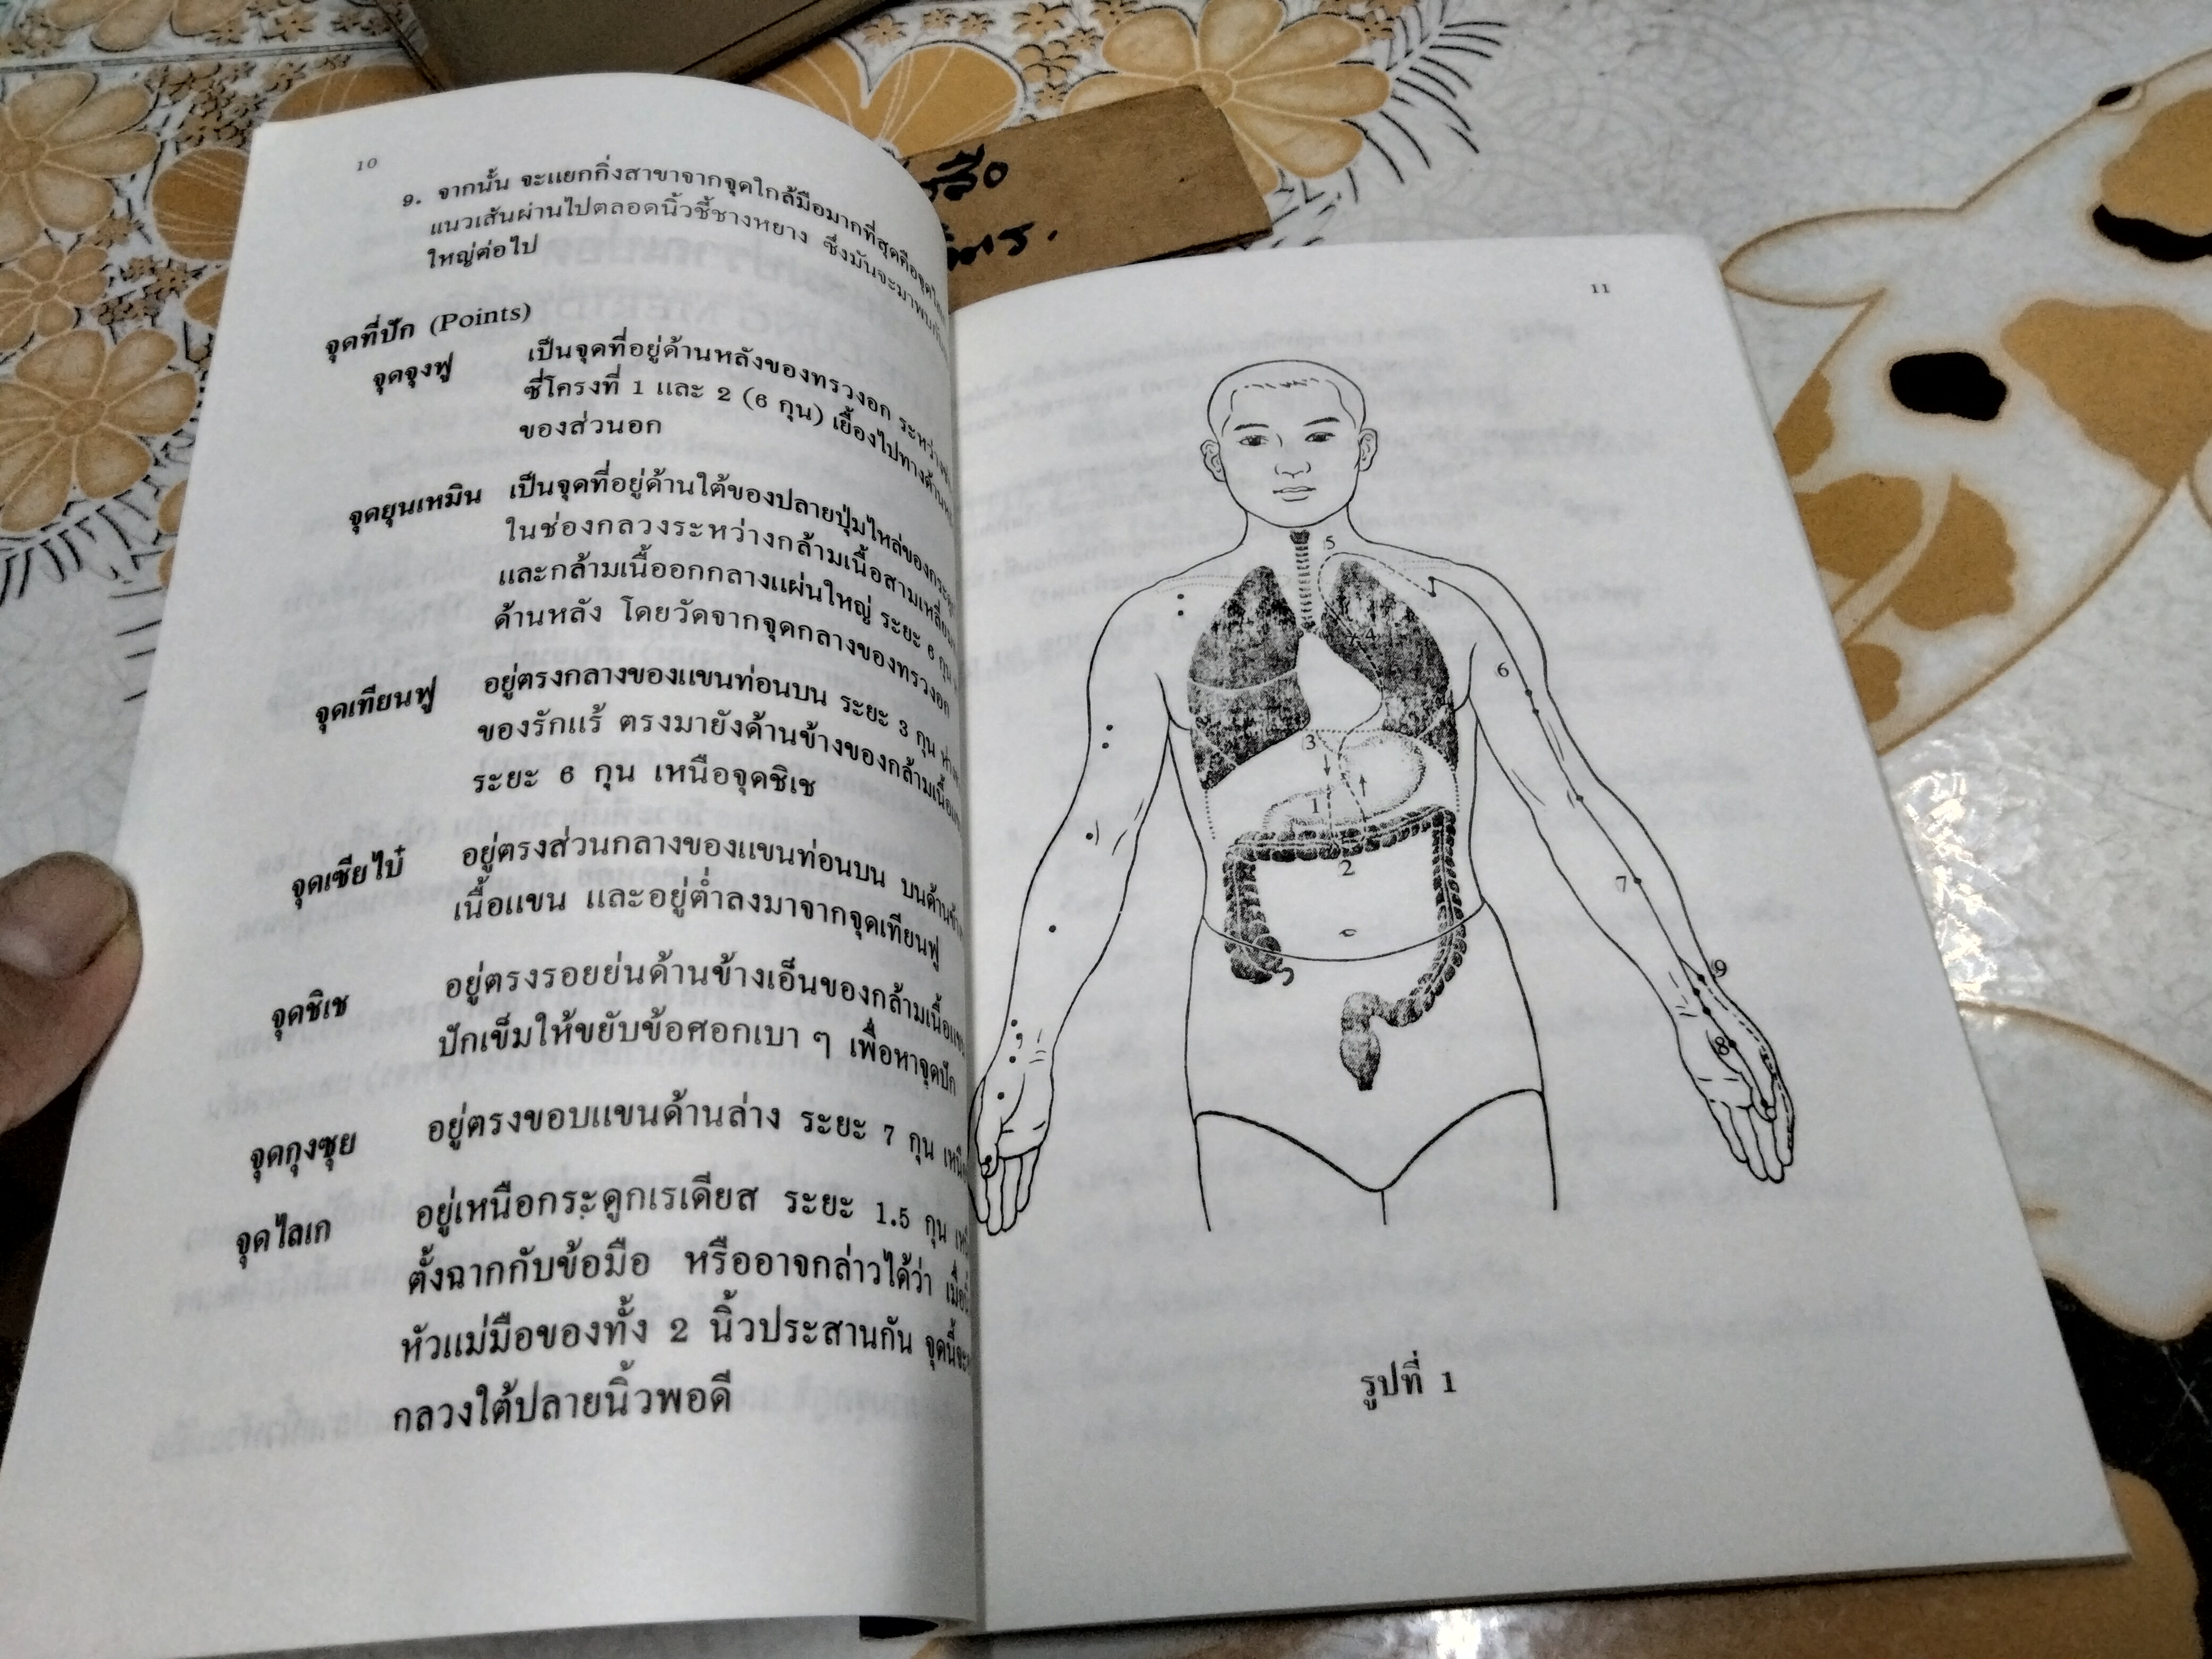 10
9. จากนั้น จะแยกกิ่งสาขาจากจุดใกล้มือมากที่สุดคือจุด
แนวเส้นผ่านไปตลอดนิ้วชี้ชางหยาง ซึ่งมันจะมาพบ
ใหญ่ต่อไป
จุดที่ปัก (Points)
จุดจุงฟู เป็นจุดที่อยู่ด้านหลังของทรวงอก ระหว่าง
ซี่โครงที่ 1 และ 2 (6 กุน) เยื้องไปทางด้าน
ของส่วนอก
จุดยุนเหมิน เป็นจุดที่อยู่ด้านใต้ของปลายปุ่มไหล่ของ
ในช่องกลวงระหว่างกล้ามเนื้อสามเหลี่ยม
และกล้ามเนื้ออกกลางแผ่นใหญ่ ระยะ 6 กุน
ด้านหลัง โดยวัดจากจุดกลางของทรวงอก
จุดเทียนฟู อยู่ตรงกลางของแขนท่อนบน ระยะ 3 กุน
ของรักแร้ ตรงมายังด้านข้างของกล้ามเนื้อ
ระยะ 6 กุน เหนือจุดชิเช
จุดเซียไบ๋ อยู่ตรงส่วนกลางของแขนท่อนบน บนด้าน
เนื้อแขน และอยู่ต่ำลงมาจากจุดเทียนฟู
จุดชิเช อยู่ตรงรอยย่นด้านข้างเอ็นของกล้ามเนื้อ
ปักเข็มให้ขยับข้อศอกเบา ๆ เพื่อหาจุดปัก
จุดกุงซุย อยู่ตรงขอบแขนด้านล่าง ระยะ 7 กุน
จุดไลเก อยู่เหนือกระดูกเรเดียส ระยะ 1.5 กุน
ตั้งฉากกับข้อมือ หรืออาจกล่าวได้ว่า
หัวแม่มือของทั้ง 2 นิ้วประสานกัน จุดนี้จะ
กลวงใต้ปลายนิ้วพอดี
11
5
4
6
3
1
2
7
9
8
รูปที่ 1